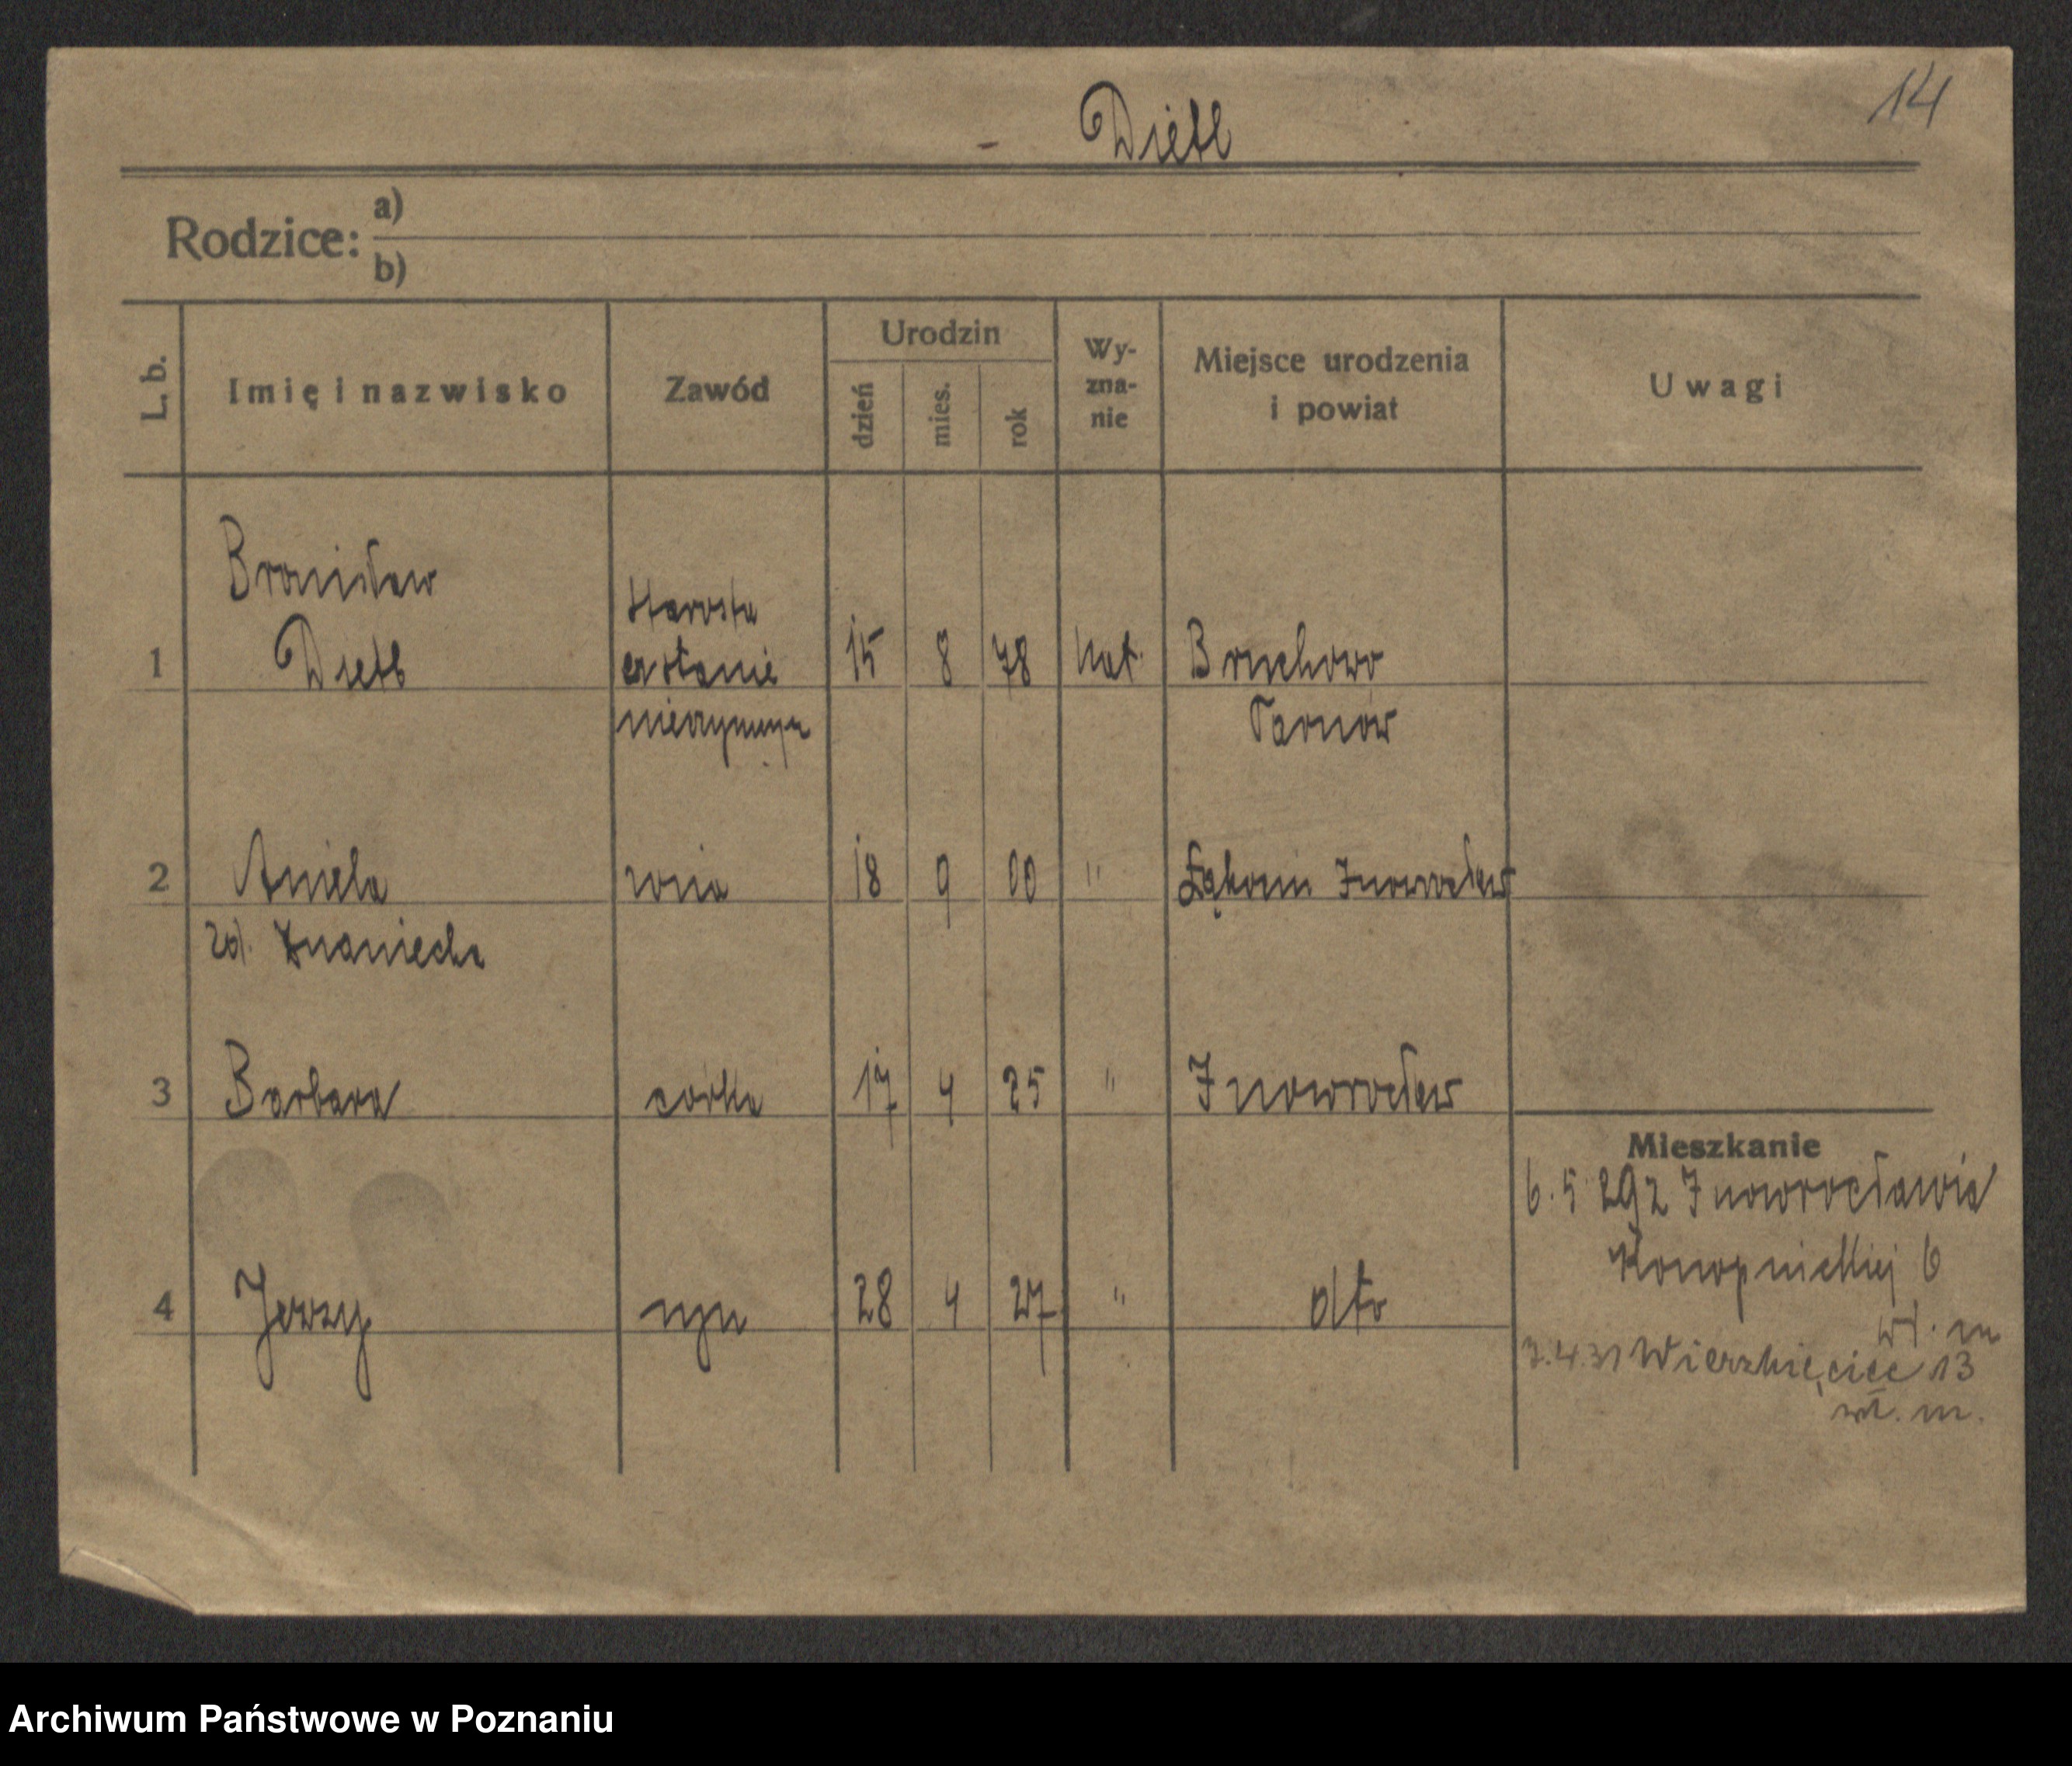 14
- Dietl
Rodzice: a)
b)
L. b.
Imię i nazwisko
Zawód
Urodzin
dzień
mies.
rok
Wy-
zna-
nie
Miejsce urodzenia
i powiat
Uwagi
Bronisław
Starosta
1 Dietl w stanie 15 8 78 kat. Bruchowo
nieczynnym Tarnów
2 Aniela żona 18 9 00 " Łąkocin Inowrocław
zd. Znaniecka
3 Barbara córka 17 4 25 " Inowrocław
Mieszkanie
6. 5. 29 z Inowrocławia
Konopnickiej 6
4 Jerzy syn 28 4 27 " dto
wł. m
7.4.31 Wierzbięcice 13
wł. m.
Archiwum Państwowe w Poznaniu